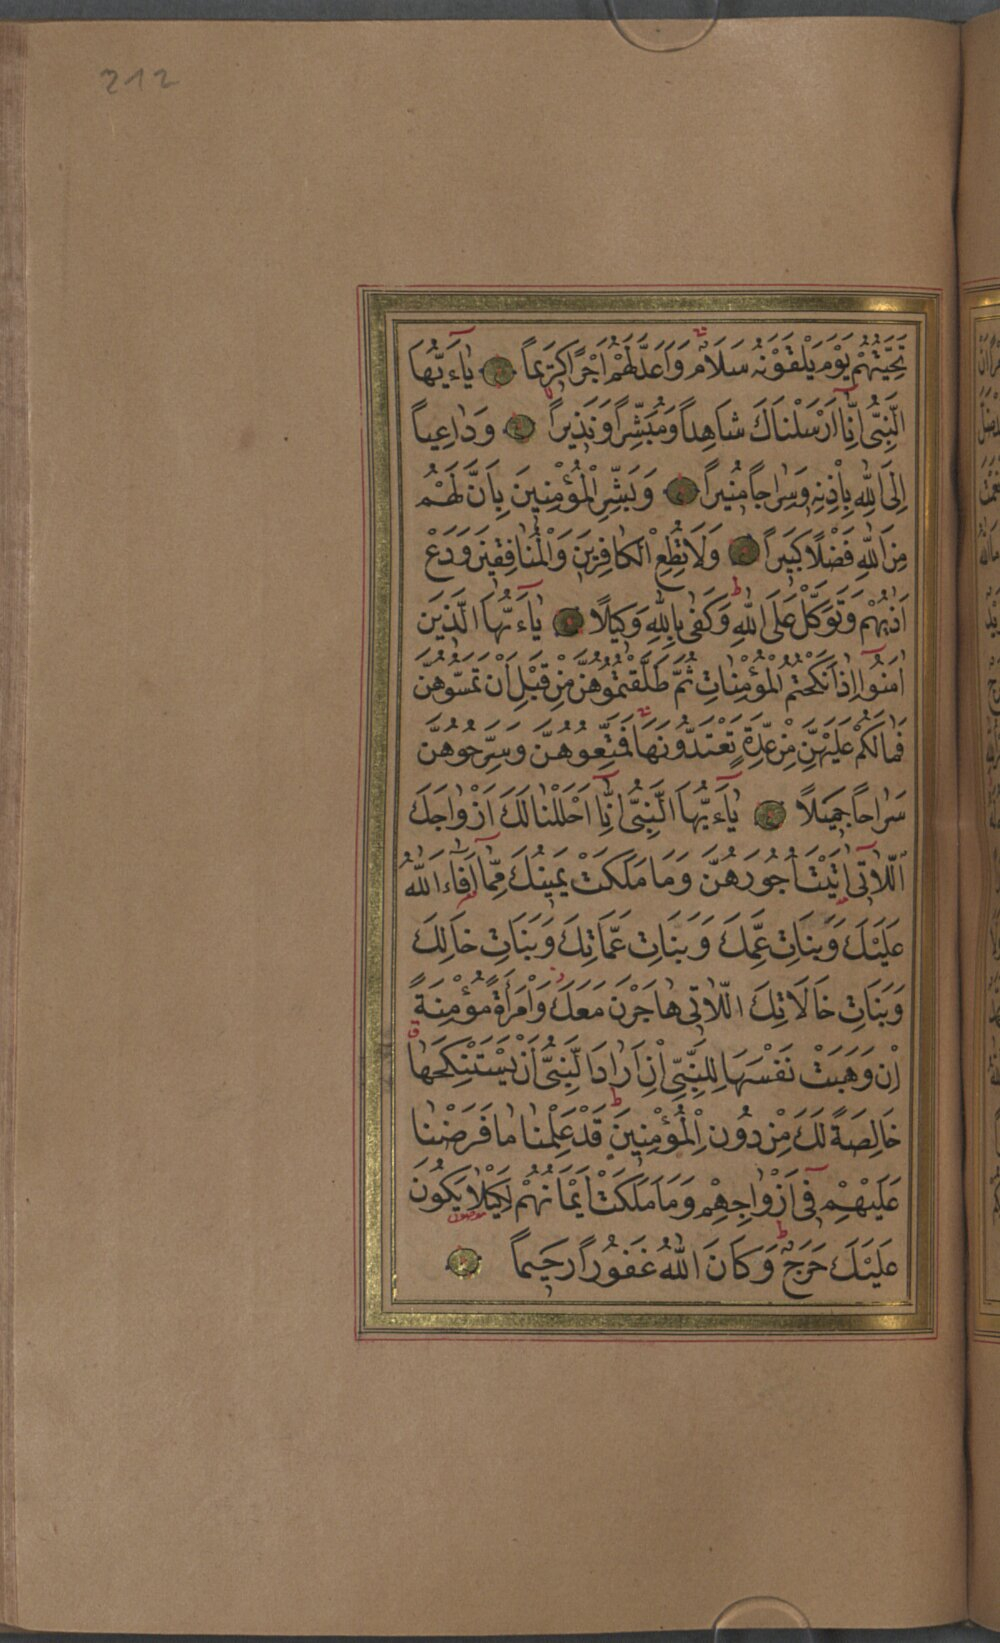 212
تَحِيَّتُهُمْ يَوْمَ يَلْقَوْنَهُ سَلَامٌ وَاَعَدَّ لَهُمْ اَجْرًا كَرِيماً يَاۤءَيُّهَا
النَّبِىُّ اِنَّاۤ اَرْسَلْنَاكَ شَاهِداً وَمُبَشِّراً وَنَذِيراً وَدَاعِياً
اِلَى اللّٰهِ بِاِذْنِهِ وَسِرَاجاً مُنِيراً وَبَشِّرِ الْمُؤْمِنِينَ بِاَنَّ لَهُمْ
مِنَ اللّٰهِ فَضْلًا كَبِيراً وَلَا تُطِعِ الْكَافِرِينَ وَالْمُنَافِقِينَ وَدَعْ
اَذٰيهُمْ وَتَوَكَّلْ عَلَى اللّٰهِ ط وَكَفٰى بِاللّٰهِ وَكِيلًا يَاۤءَيُّهَا الَّذِينَ
اٰمَنُوۤا اِذَا نَكَحْتُمُ الْمُؤْمِنَاتِ ثُمَّ طَلَّقْتُمُوهُنَّ مِنْ قَبْلِ اَنْ تَمَسُّوهُنَّ
فَمَا لَكُمْ عَلَيْهِنَّ مِنْ عِدَّةٍ تَعْتَدُّونَهَا فَمَتِّعُوهُنَّ وَسَرِّحُوهُنَّ
سَرَاحاً جَمِيلًا يَاۤءَيُّهَا النَّبِىُّ اِنَّاۤ اَحْلَلْنَا لَكَ اَزْوَاجَكَ
اللَّاتِىۤ اٰتَيْتَ اُجُورَهُنَّ وَمَا مَلَكَتْ يَمِينُكَ مِمَّاۤ اَفَاۤءَ اللّٰهُ
عَلَيْكَ وَبَنَاتِ عَمِّكَ وَبَنَاتِ عَمَّاتِكَ وَبَنَاتِ خَالِكَ
وَبَنَاتِ خَالَاتِكَ اللَّاتِى هَاجَرْنَ مَعَكَ وَامْرَاَةً مُؤْمِنَةً
اِنْ وَهَبَتْ نَفْسَهَا لِلنَّبِىِّ اِنْ اَرَادَ النَّبِىُّ اَنْ يَسْتَنْكِحَهَا ق
خَالِصَةً لَكَ مِنْ دُونِ الْمُؤْمِنِينَ ط قَدْ عَلِمْنَا مَا فَرَضْنَا
عَلَيْهِمْ فِىۤ اَزْوَاجِهِمْ وَمَا مَلَكَتْ اَيْمَانُهُمْ لِكَيْلَا يَكُونَ
عَلَيْكَ حَرَجٌ ط وَكَانَ اللّٰهُ غَفُوراً رَحِيماً